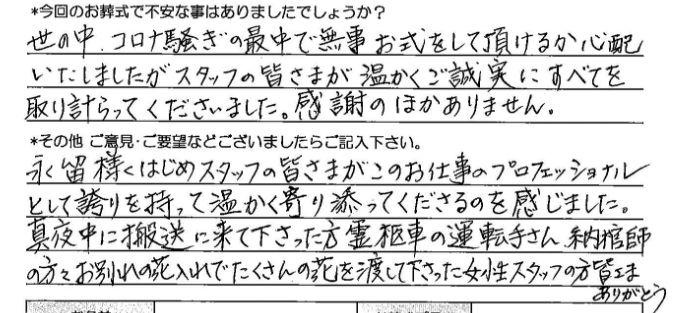 *今回のお葬式で不安な事はありましたでしょうか?
世の中、コロナ騒ぎの最中で無事お式をして頂けるか心配
いたしましたがスタッフの皆さまが温かくご誠実にすべてを
取り計らってくださいました。感謝のほかありません。
*その他 ご意見・ご要望などございましたらご記入下さい。
永留様はじめスタッフの皆さまがこのお仕事のプロフェッショナル
として誇りを持って温かく寄り添ってくださるのを感じました。
真夜中に搬送に来て下さった方霊柩車の運転手さん納棺師
の方々お別れの花入れでたくさんの花を渡して下さった女性スタッフの方皆さま
ありがとう